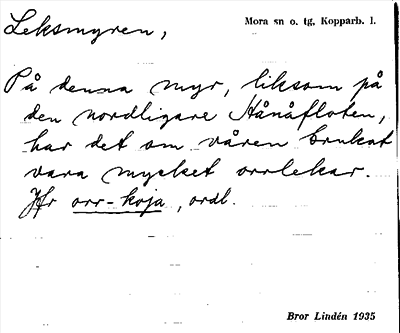 Leksmyren,
Mora sn o. tg, Kopparb. l.
På denna myr, liksom på
den nordligare Hånåfloten,
har det om våren brukat
vara mycket orrlekar.
Jfr orr-koja, ordl.
Bror Lindén 1935